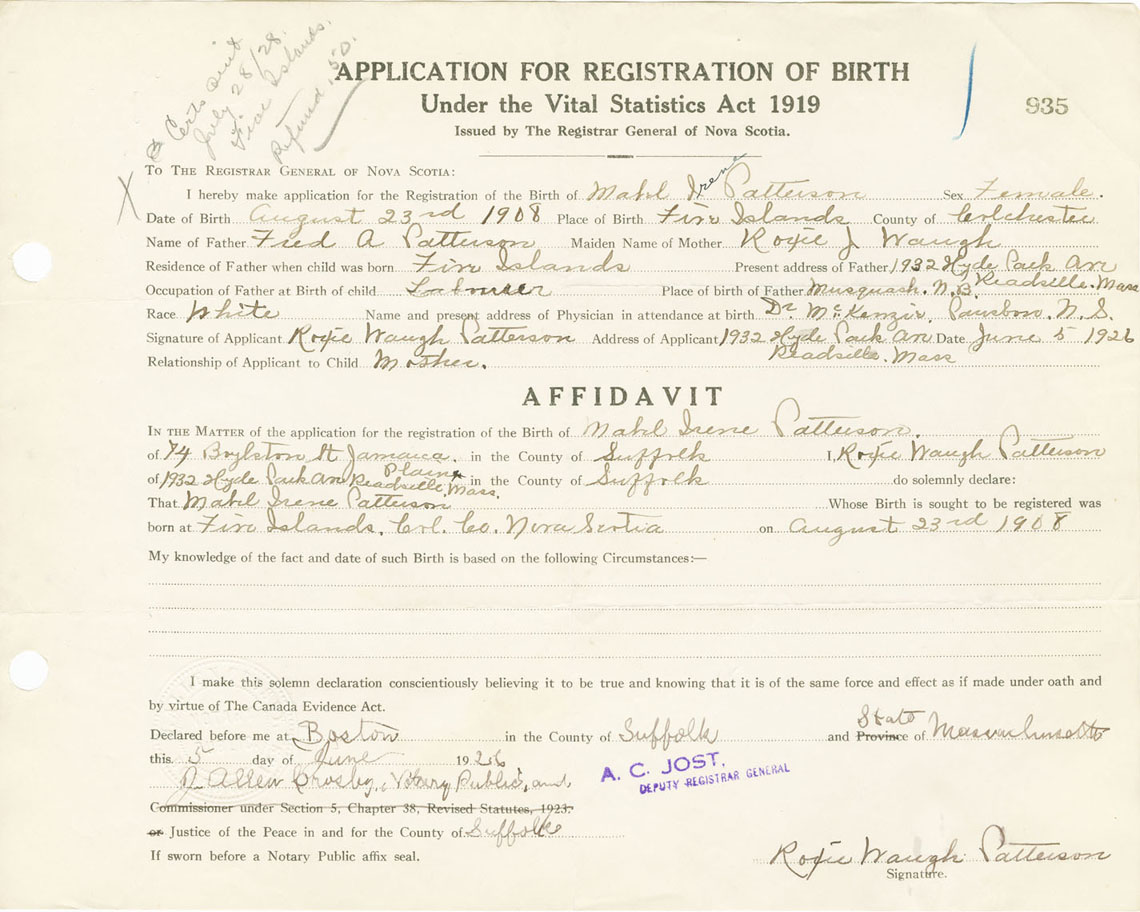 2 Certs sent
July 28/28.
Five Islands.
Refund .50.
APPLICATION FOR REGISTRATION OF BIRTH
Under the Vital Statistics Act 1919
935
Issued by The Registrar General of Nova Scotia.
X
TO THE REGISTRAR GENERAL OF NOVA SCOTIA:
I hereby make application for the Registration of the Birth of Mabl Irene Patterson Sex Female.
Date of Birth August 23rd 1908 Place of Birth Five Islands County of Colchester
Name of Father Fred A Patterson Maiden Name of Mother Roxie J Waugh
Residence of Father when child was born Five Islands Present address of Father 1932 Hyde Park Ave
Readville. Mass
Occupation of Father at Birth of child Labourer Place of birth of Father Musquash. N.B.
Race White Name and present address of Physician in attendance at birth Dr McKenzie. Parsboro. N.S.
Signature of Applicant Roxie Waugh Patterson Address of Applicant 1932 Hyde Park Ave Date June 5 1926
Readville. Mass
Relationship of Applicant to Child Mother.
AFFIDAVIT
IN THE MATTER of the application for the registration of the Birth of Mabl Irene Patterson.
of 74 Boylston St Jamaica Plain in the County of Suffolk I, Roxie Waugh Patterson
of 1932 Hyde Park Ave Readville, Mass. in the County of Suffolk do solemnly declare:
That Mabl Irene Patterson Whose Birth is sought to be registered was
born at Five Islands, Col. Co. Nova Scotia on August 23rd 1908
My knowledge of the fact and date of such Birth is based on the following Circumstances:—
I make this solemn declaration conscientiously believing it to be true and knowing that it is of the same force and effect as if made under oath and
by virtue of The Canada Evidence Act.
Declared before me at Boston in the County of Suffolk and Province State of Massachusetts
this 5 day of June 1926
A. C. JOST.
DEPUTY REGISTRAR GENERAL
Allen Crosby, Notary Public, and
Commissioner under Section 5, Chapter 38, Revised Statutes, 1923.
or Justice of the Peace in and for the County of Suffolk
If sworn before a Notary Public affix seal.
Roxie Waugh Patterson
Signature.